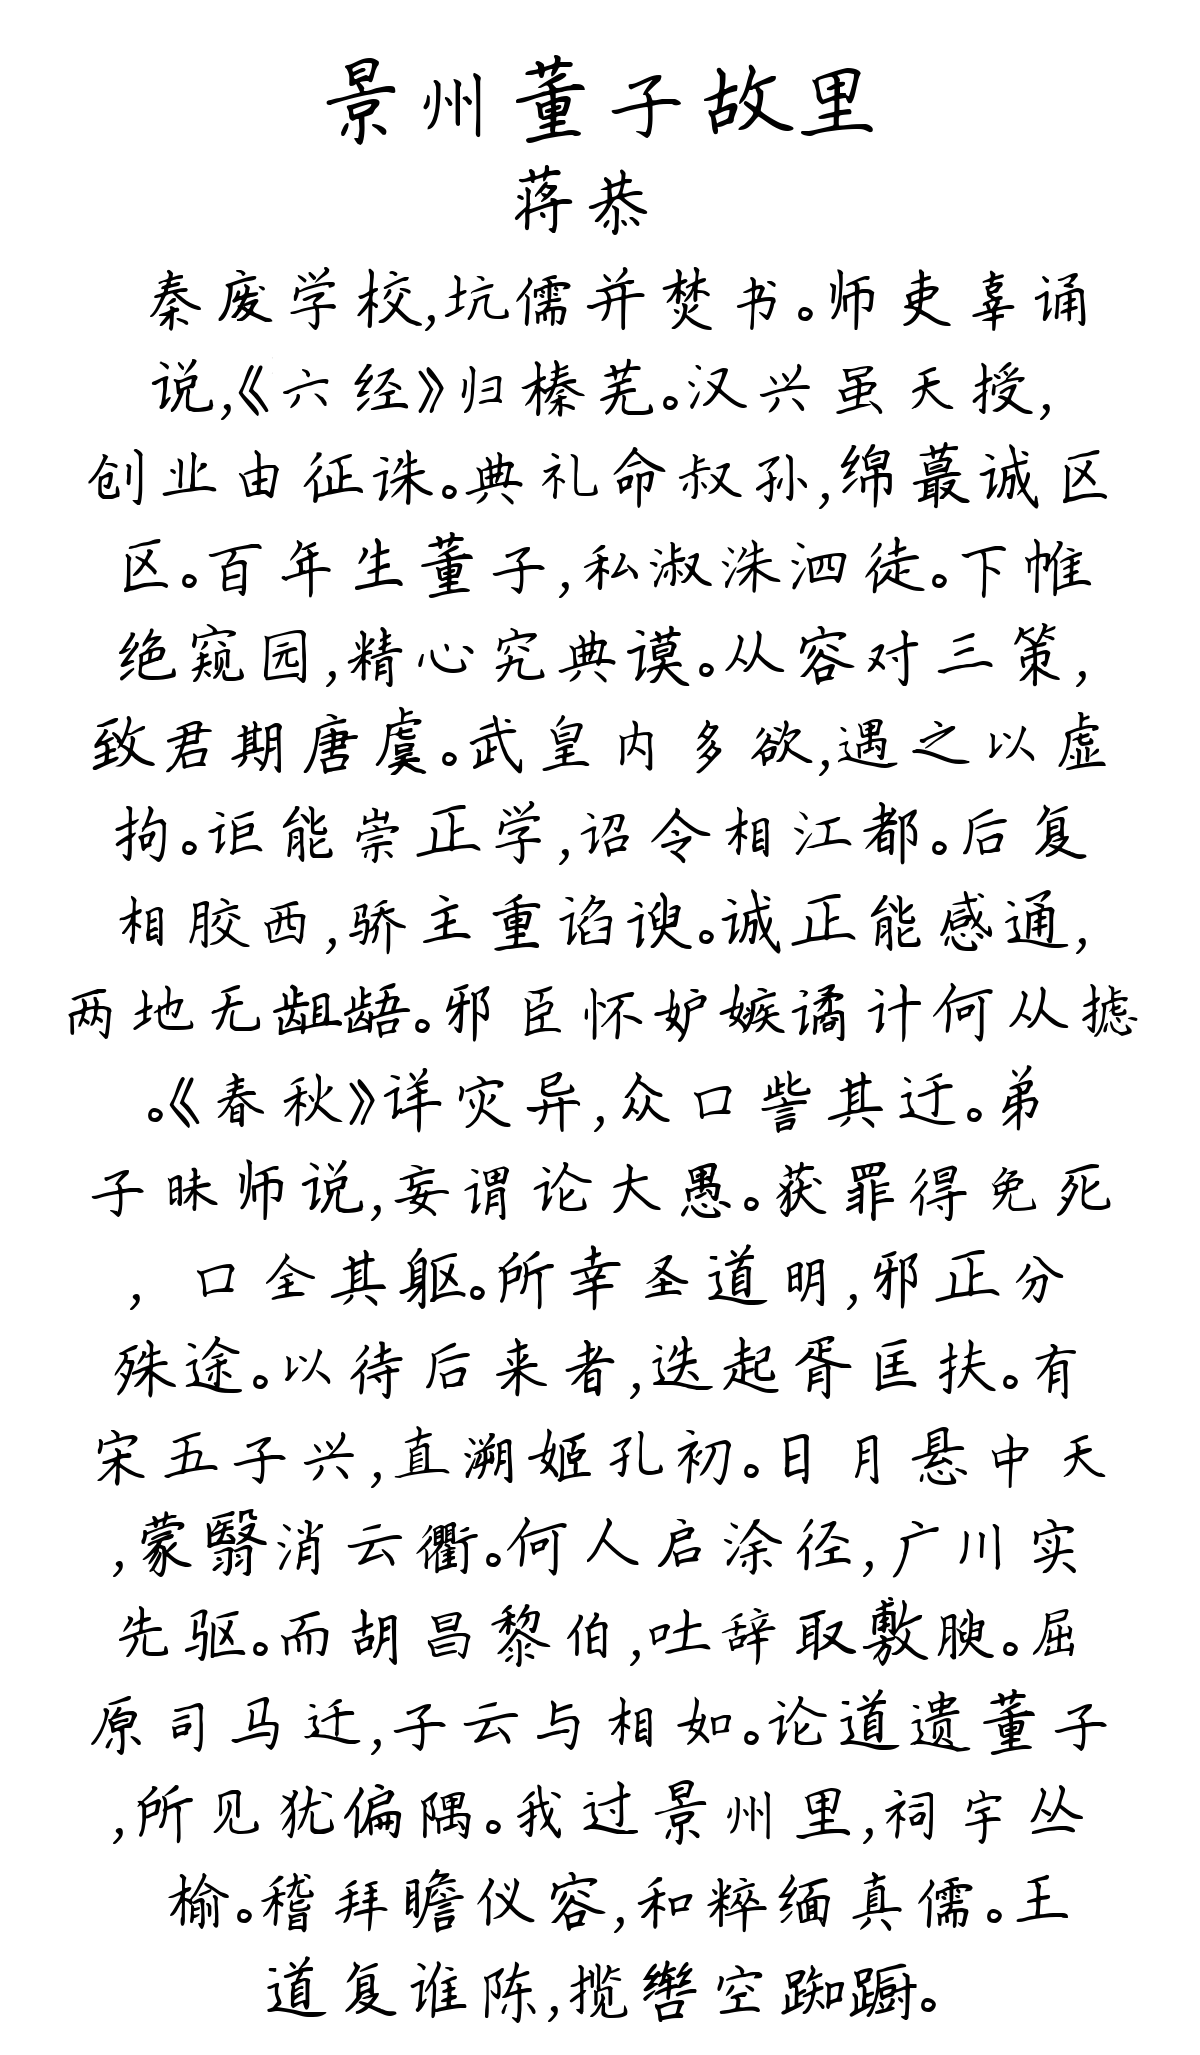 景州董子故里
蒋恭
秦废学校,坑儒并焚书。师吏辜诵
说,《六经》归榛芜。汉兴虽天授,
创业由征诛。典礼命叔孙,绵蕞诚区
区。百年生董子,私淑洙泗徒。下帷
绝窥园,精心究典谟。从容对三策,
致君期唐虞。武皇内多欲,遇之以虚
拘。讵能崇正学,诏令相江都。后复
相胶西,骄主重谄谀。诚正能感通,
两地无龃龉。邪臣怀妒嫉谲计何从摅
。《春秋》详灾异,众口訾其迂。弟
子昧师说,妄谓论大愚。获罪得免死
,口全其躯。所幸圣道明,邪正分
殊途。以待后来者,迭起胥匡扶。有
宋五子兴,直溯姬孔初。日月悬中天
,蒙翳消云衢。何人启涂径,广川实
先驱。而胡昌黎伯,吐辞取敷腴。屈
原司马迁,子云与相如。论道遗董子
,所见犹偏隅。我过景州里,祠宇丛
榆。稽拜瞻仪容,和粹缅真儒。王
道复谁陈,揽辔空踟蹰。